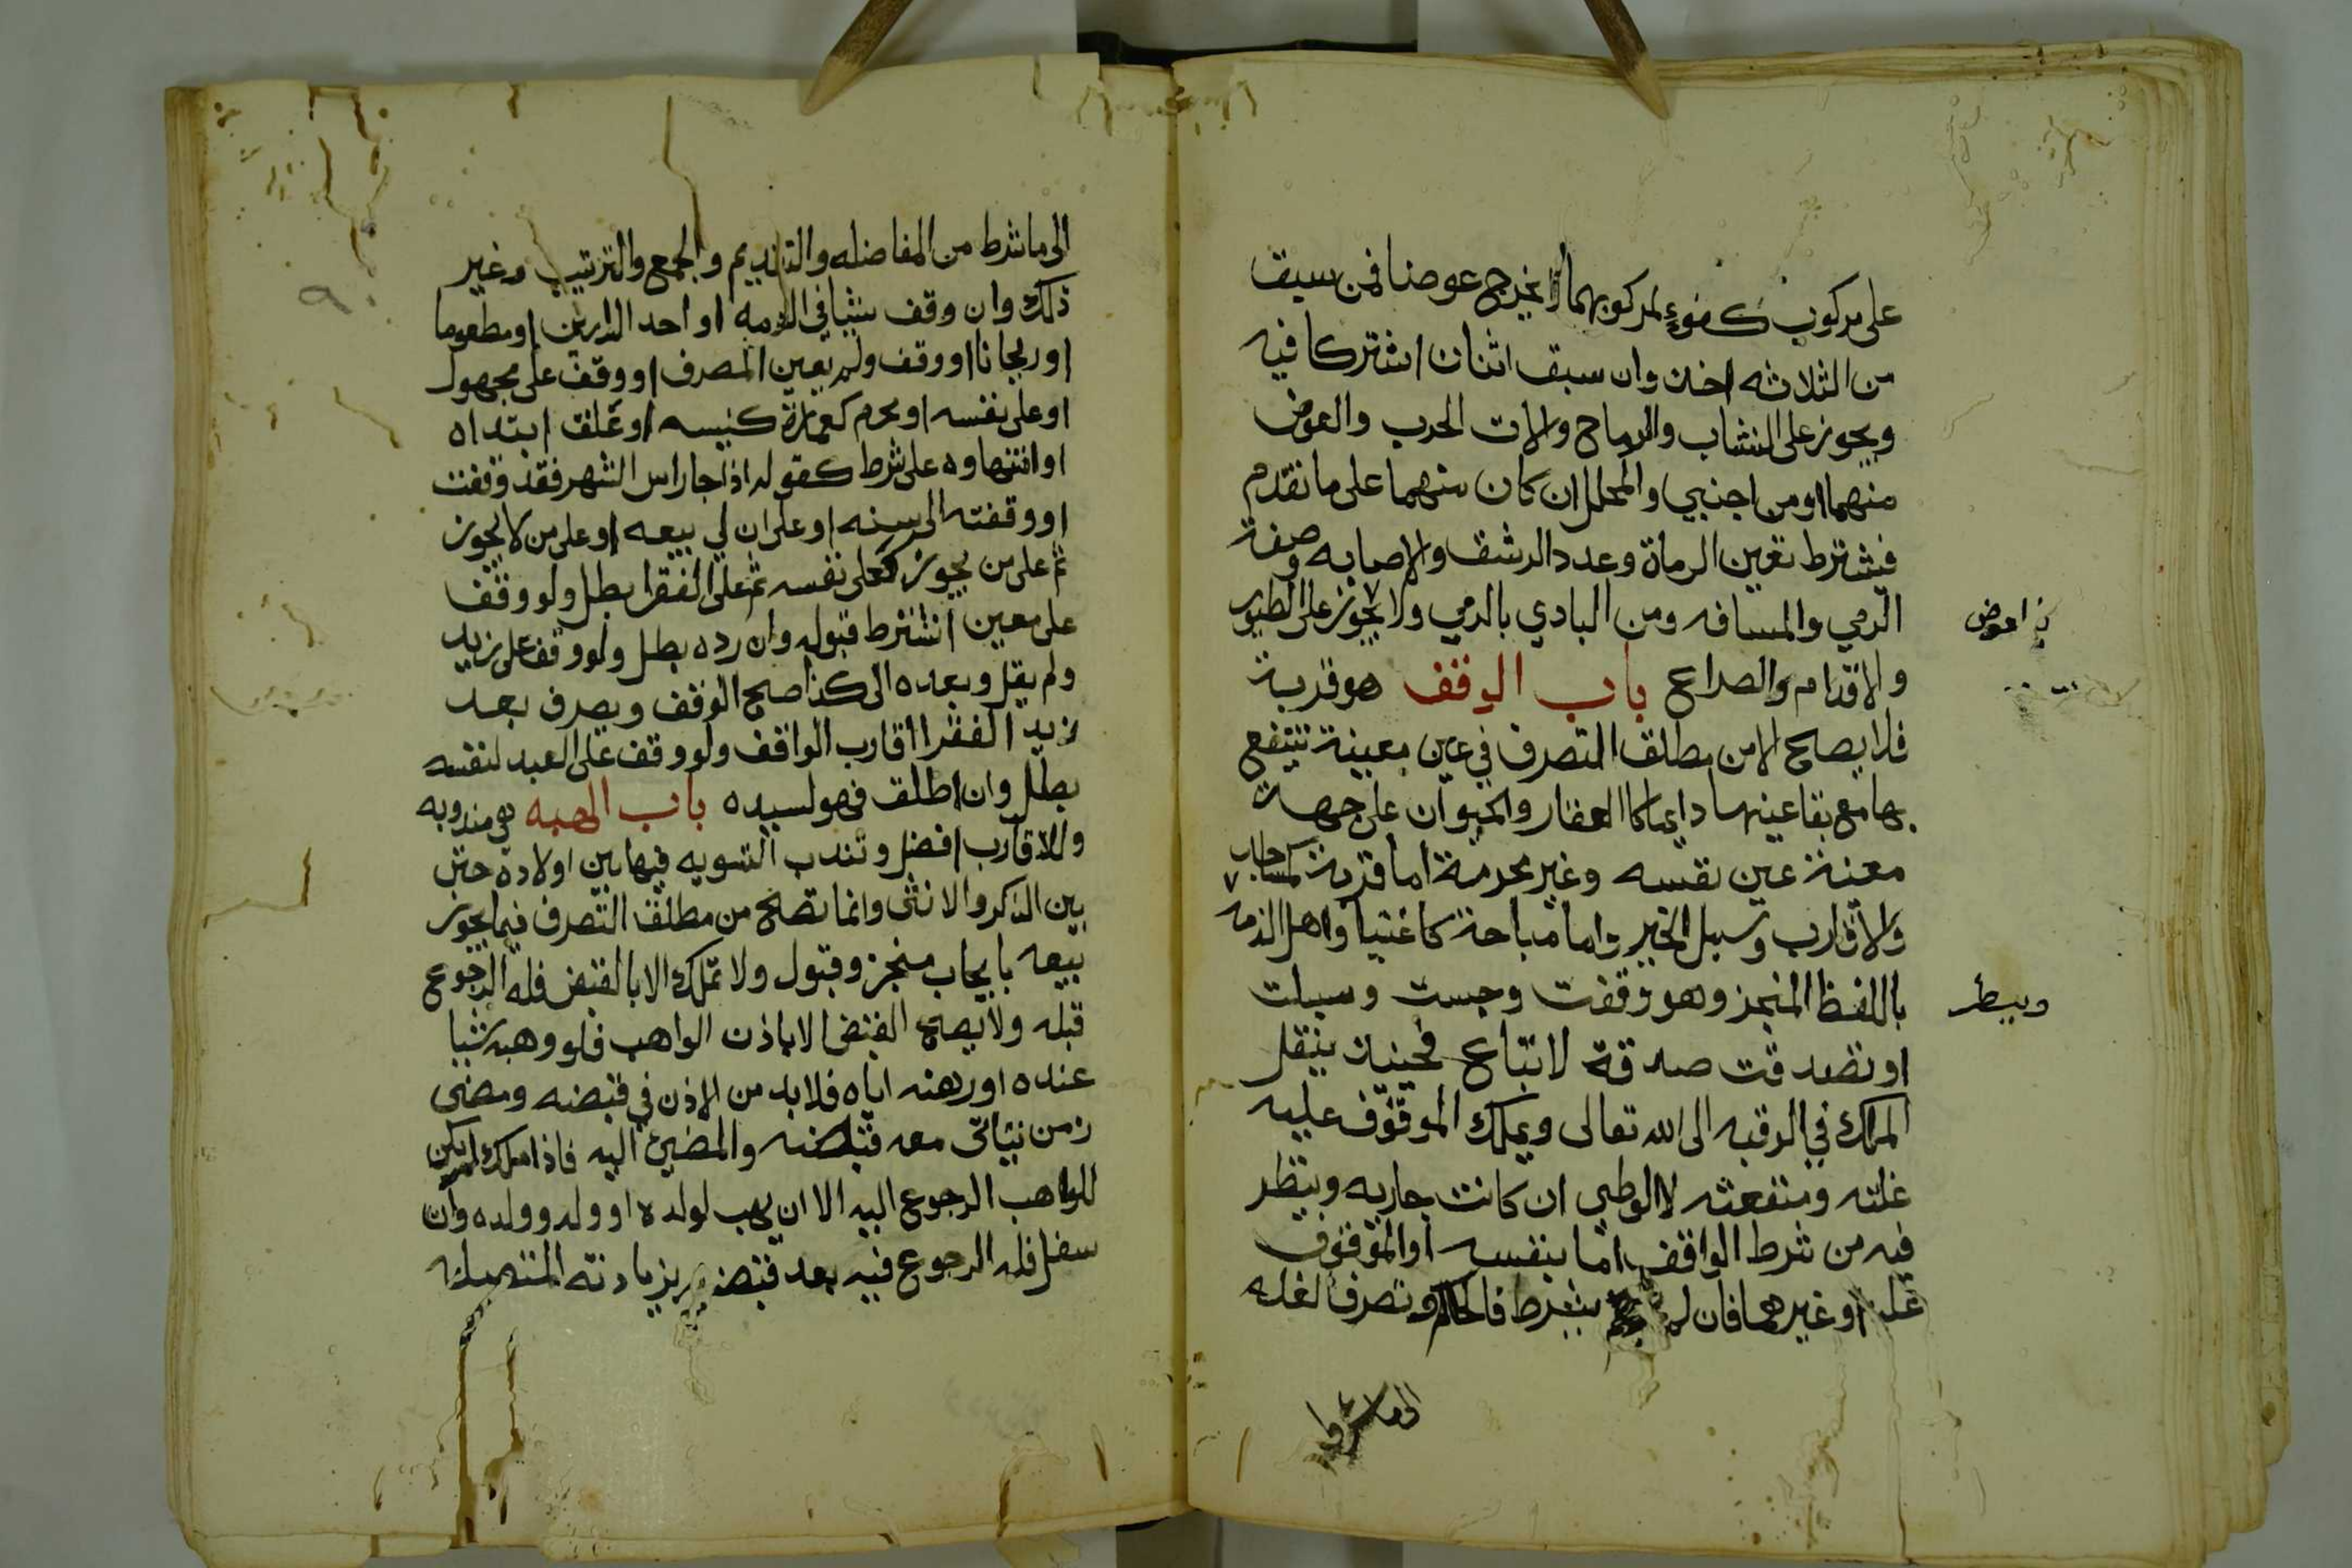 على مركوب كفوء لمركوبهما لا يخرج عوضا فمن سبق
من الثلاثه اخذ وان سبق اثنان اشتركا فيه
ويجوز على النشاب والرماح والات الحرب والعوض
منهما او من اجنبي والمحلل ان كان منهما على ما تقدم
فيشترط تعين الرماة وعدد الرشق والاصابه وصفة
الرمي والمسافه ومن البادي بالرمي ولا يجوز على الطيور
بعوض
والاقدام والصراع باب الوقف هو قربة
فلا يصح الا من مطلق التصرف في عين معينة ينتفع
بها مع بقا عينها دايما كالعقار والحيوان على جهة
معينة عين نفسه وغير محرمة اما قربة كمساجد
والاقارب وسبل الخير واما مباحة كاغنيا واهل الذمه
باللفظ المنجز وهو وقفت وحبست وسبلت
او تصدقت صدقة لا تباع فحينئذ ينتقل
الملك في الرقبه الى الله تعالى ويملك الموقوف عليه
غلته ومنفعته لا الوطي ان كانت جاريه وينظر
فيه من شرط الواقف اما بنفسه او الموقوف
عليه او غيرهما فان لم يشرط فالحاكم وتصرف الغله
الى ما شرط
الى ما شرط من المفاضله والتقديم والجمع والترتيب وغير
ذلك وان وقف شيئا في الذمه او احد الدارين او مطعوما
او ريحانا او وقف ولم يعين المصرف او وقف على مجهول
او على نفسه او محرم كعمارة كنيسه او علق ابتداه
او انتهاوه على شرط كقوله اذا جا راس الشهر فقد وقفت
او وقفته الى سنه او على ان لي بيعه او على من لا يجوز
ثم على من يجوز كعلى نفسه ثم على الفقرا بطل ولو وقف
على معين اشترط قبوله وان رده بطل ولو وقف على زيد
ولم يقل وبعده الى كذا صح الوقف ويصرف بعد
زيد الفقرا اقارب الواقف ولو وقف على العبد لنفسه
بطل وان اطلق فهو لسيده باب الهبه هي مندوبه
وللاقارب افضل وتندب التسويه فيها بين اولاده حتى
بين الذكر والانثى وانما تصح من مطلق التصرف فيما يجوز
بيعه بايجاب منجز وقبول ولا تملك الا بالقبض فله الرجوع
قبله ولا يصح القبض الا باذن الواهب فلو وهبه شيا
عنده او رهنه اياه فلا بد من الاذن في قبضه ومضى
زمن يتاتى معه قبضه والمضي اليه فاذا ملك لم يكن
للواهب الرجوع اليه الا ان يهب لولده او ولد وولده وان
سفل فله الرجوع فيه بعد قبضه بزيادته المتصله